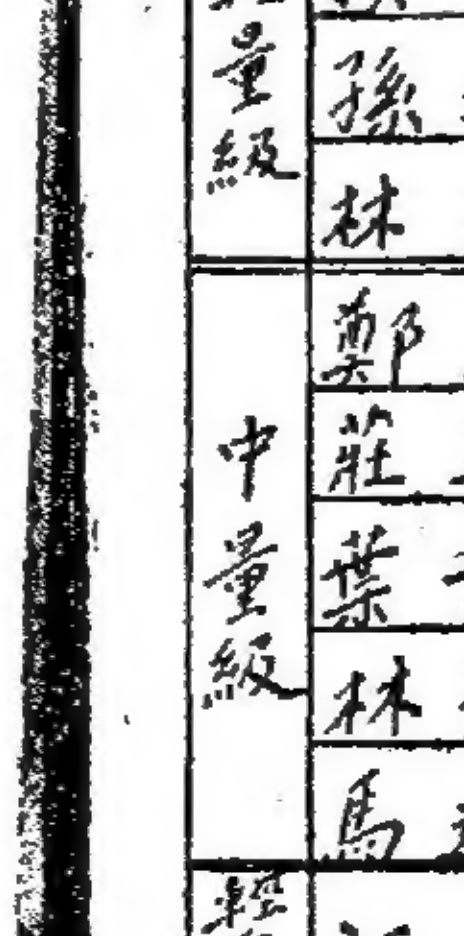 量級
孫
林
中量級
鄭
莊
葉
林
馬
輕